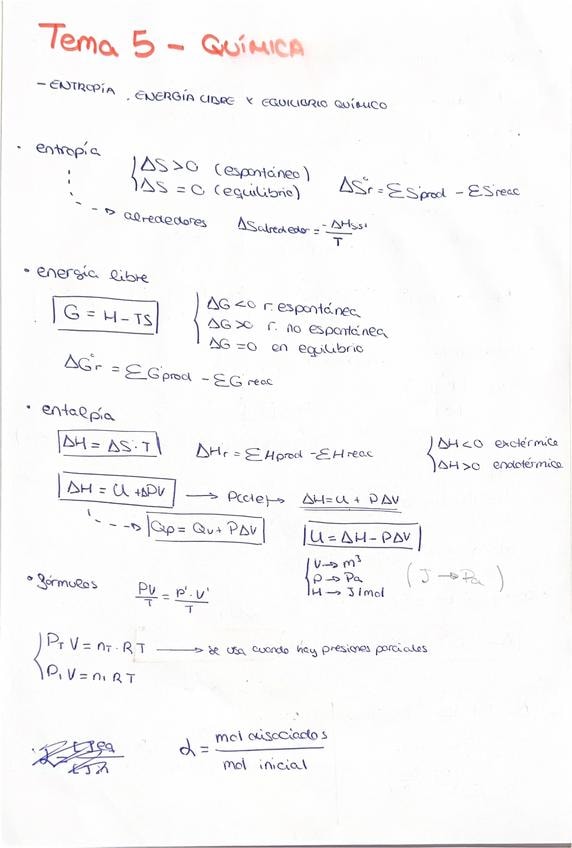 Tema 5 - QUÍMICA
- ENTROPÍA, ENERGÍA LIBRE Y EQUILIBRIO QUÍMICO
• entropía
ΔS>0 (espontáneo)
ΔS=0 (equilibrio)
ΔS°r = ΣS°prod - ΣS°reac
alrededores ΔSalrededor = -ΔHsist / T
• energía libre
G = H - TS
ΔG<0 r. espontánea
ΔG>0 r. no espontánea
ΔG=0 en equilibrio
ΔG°r = ΣG°prod - ΣG°reac
• entalpía
ΔH = ΔS·T
ΔHr = ΣHprod - ΣHreac
ΔH<0 exotérmica
ΔH>0 endotérmica
ΔH = U + ΔPV → P(cte) → ΔH = U + PΔV
Qp = Qv + PΔV
U = ΔH - PΔV
V → m³
P → Pa
H → J/mol
(J → Pa)
• fórmulas
PV/T = P'·V'/T
PT V = nT · RT → se usa cuando hay presiones parciales
Pi V = ni RT
α = mol disociados / mol inicial